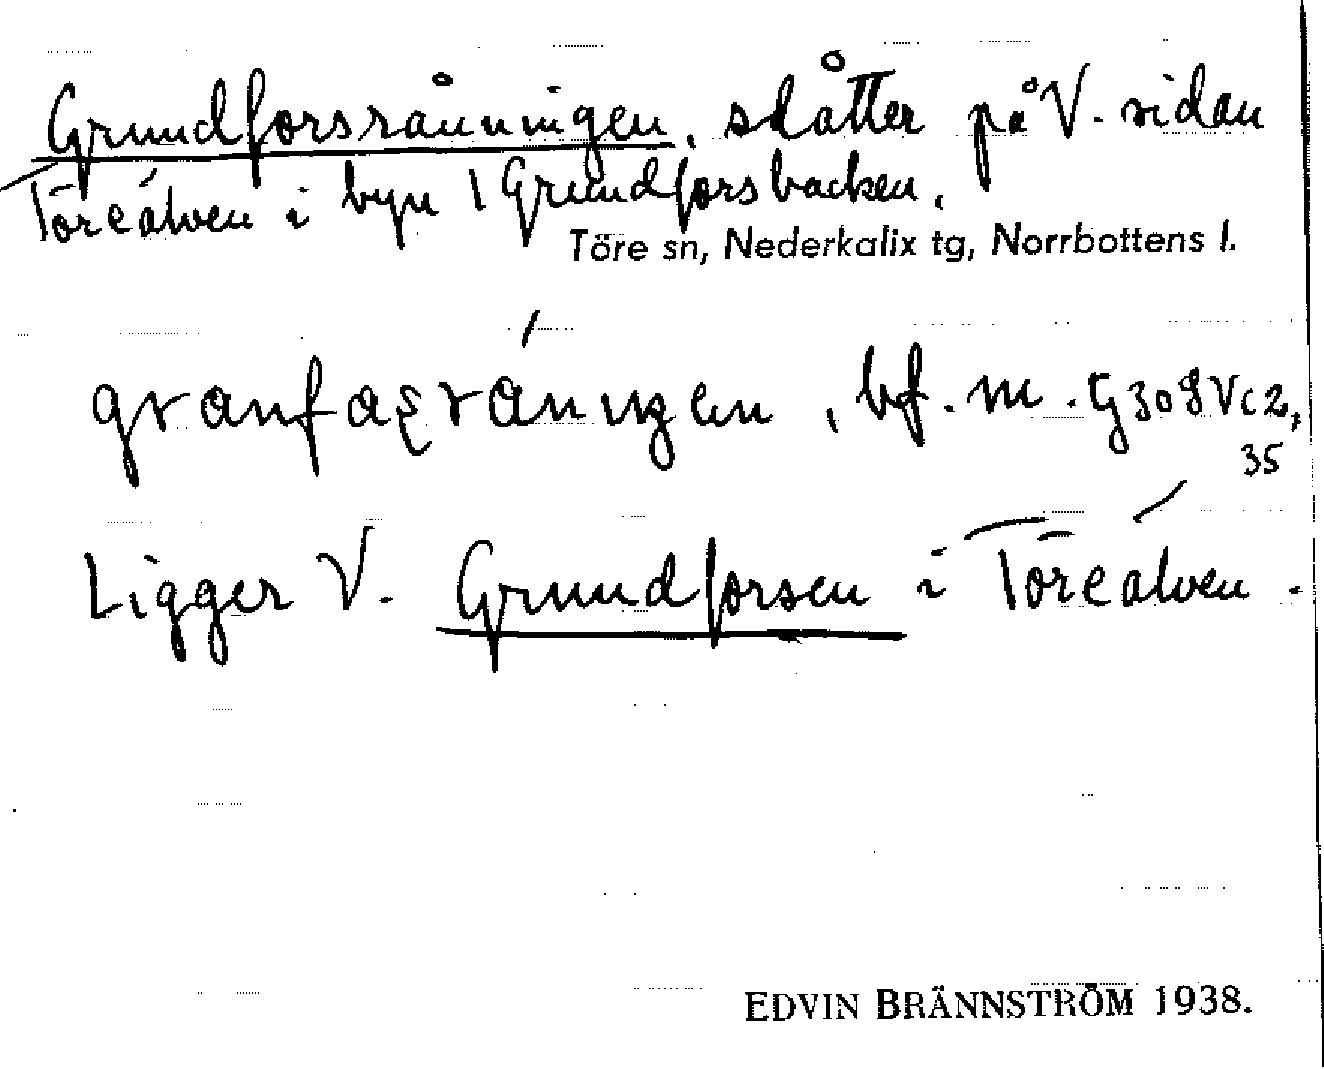 Grundforsråningen, slåtter på V. sidan
Töreälven i byn 1 Grundforsbacken.
Töre sn, Nederkalix tg, Norrbottens l.
bf. m. G308Vc2,
35
Ligger V. Grundforsen i Töreälven.
EDVIN BRÄNNSTRÖM 1938.